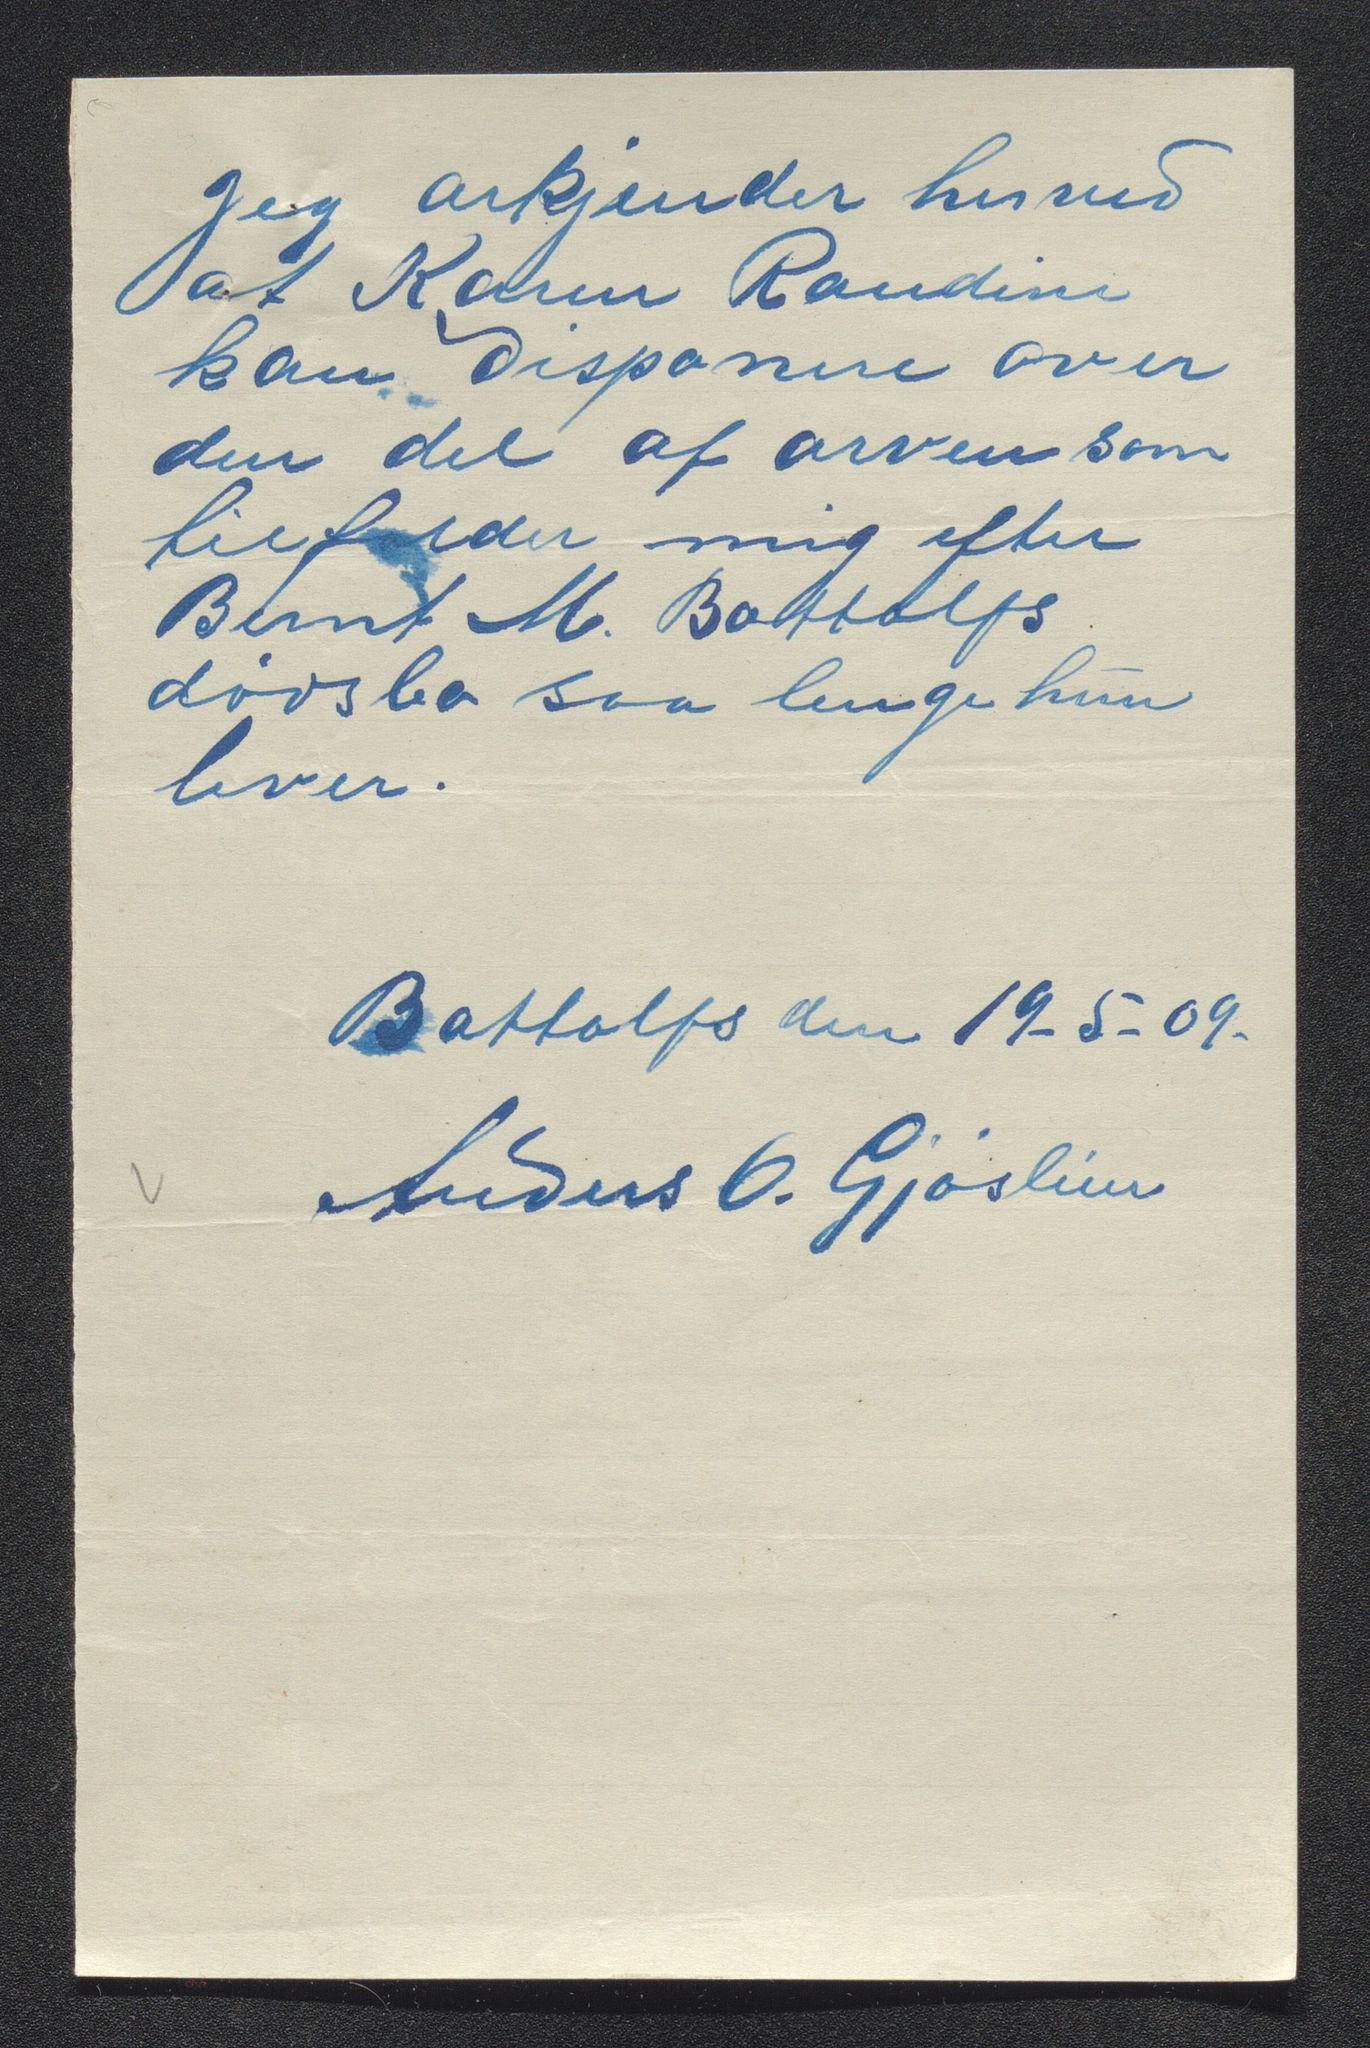 Jeg arkjender herved
at Karen Randine
kan disponere over
den del af arven som
tilfalder mig efter
Bernt M. Battolfs
dödsbo saa lenge hun
lever.
Battolfs den 19-5-09.
Anders O. Gjöslien